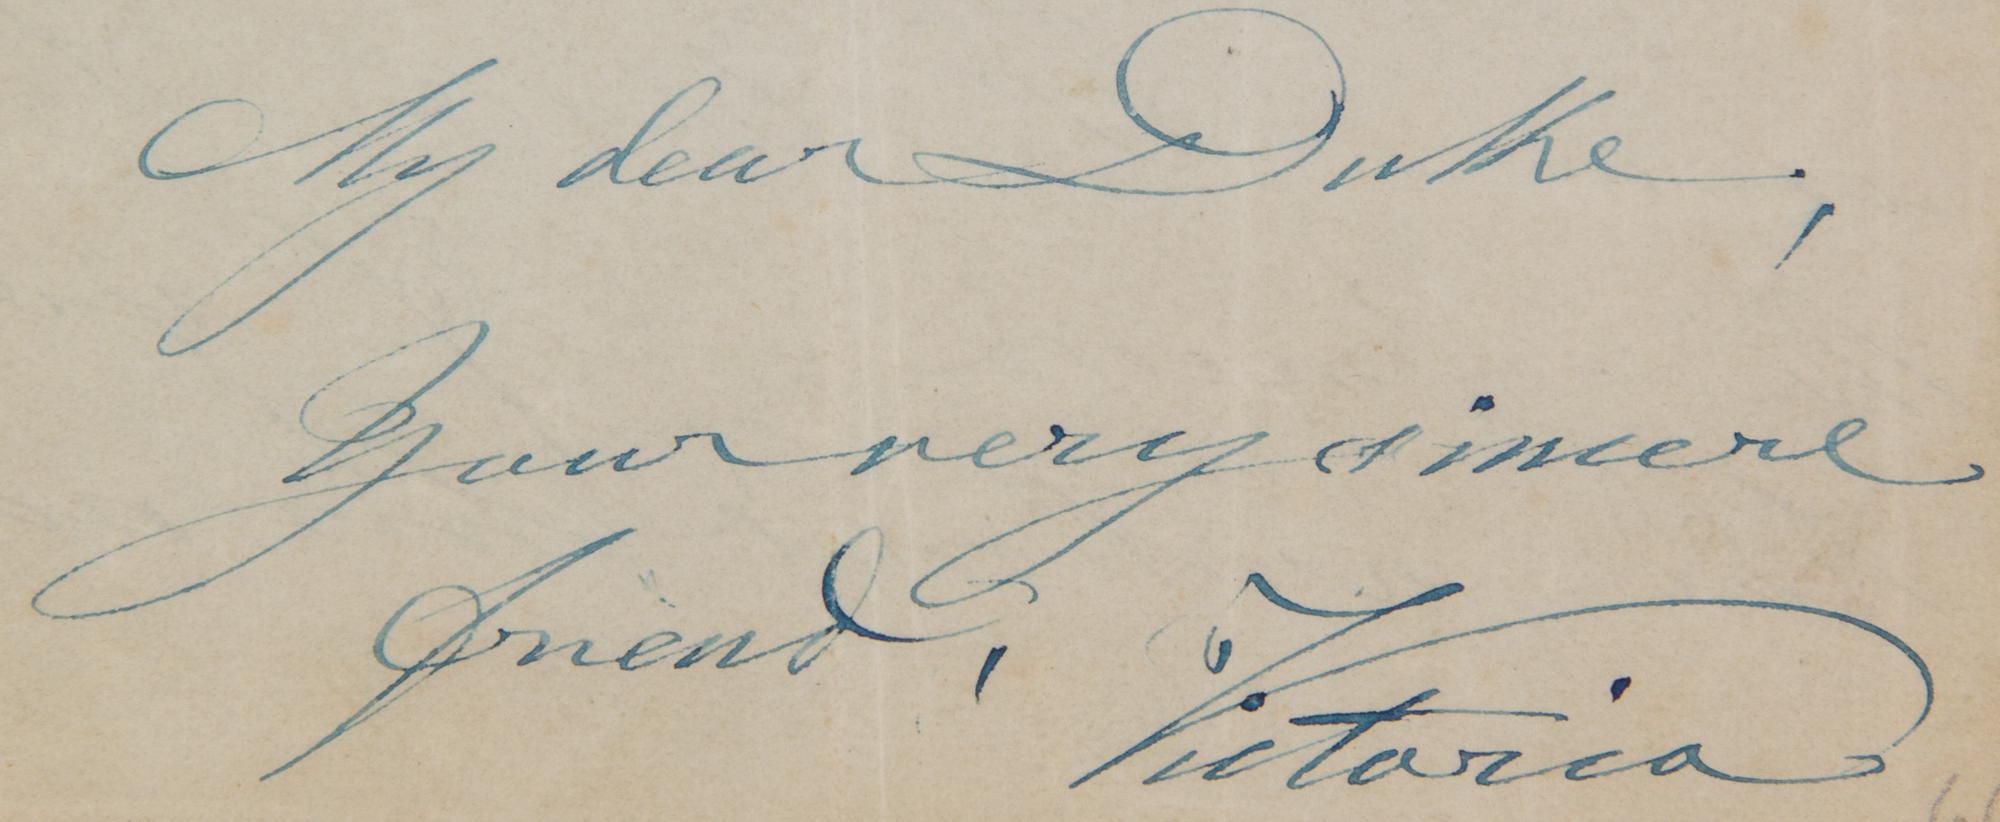 My dear Duke,
Your very sincere
friend,
Victoria